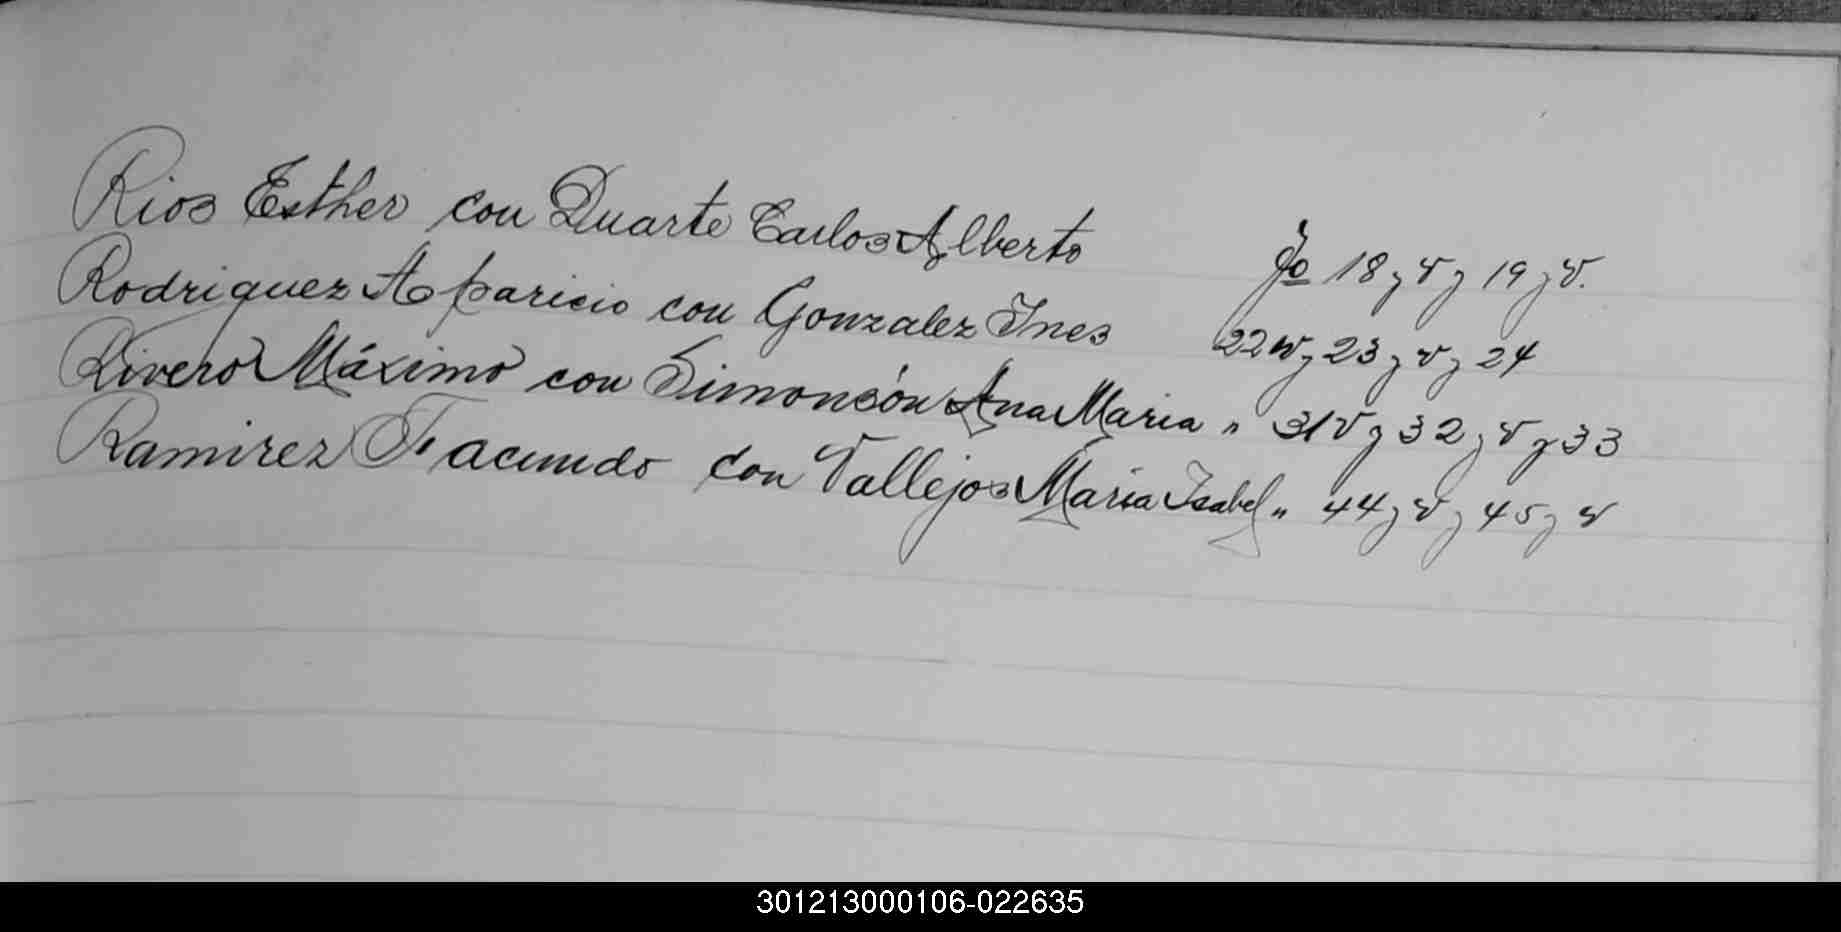 Rios Esther con Duarte Carlos Alberto fo 18 y v y 19 y v.
Rodriguez Aparicio con Gonzalez Ines 22 v y 23 y v y 24
Rivero Máximo con Simonsón Ana Maria " 31 v y 32 y v y 33
Ramirez Facundo con Vallejos Maria Isabel " 44 y v y 45 y v
301213000106-022635